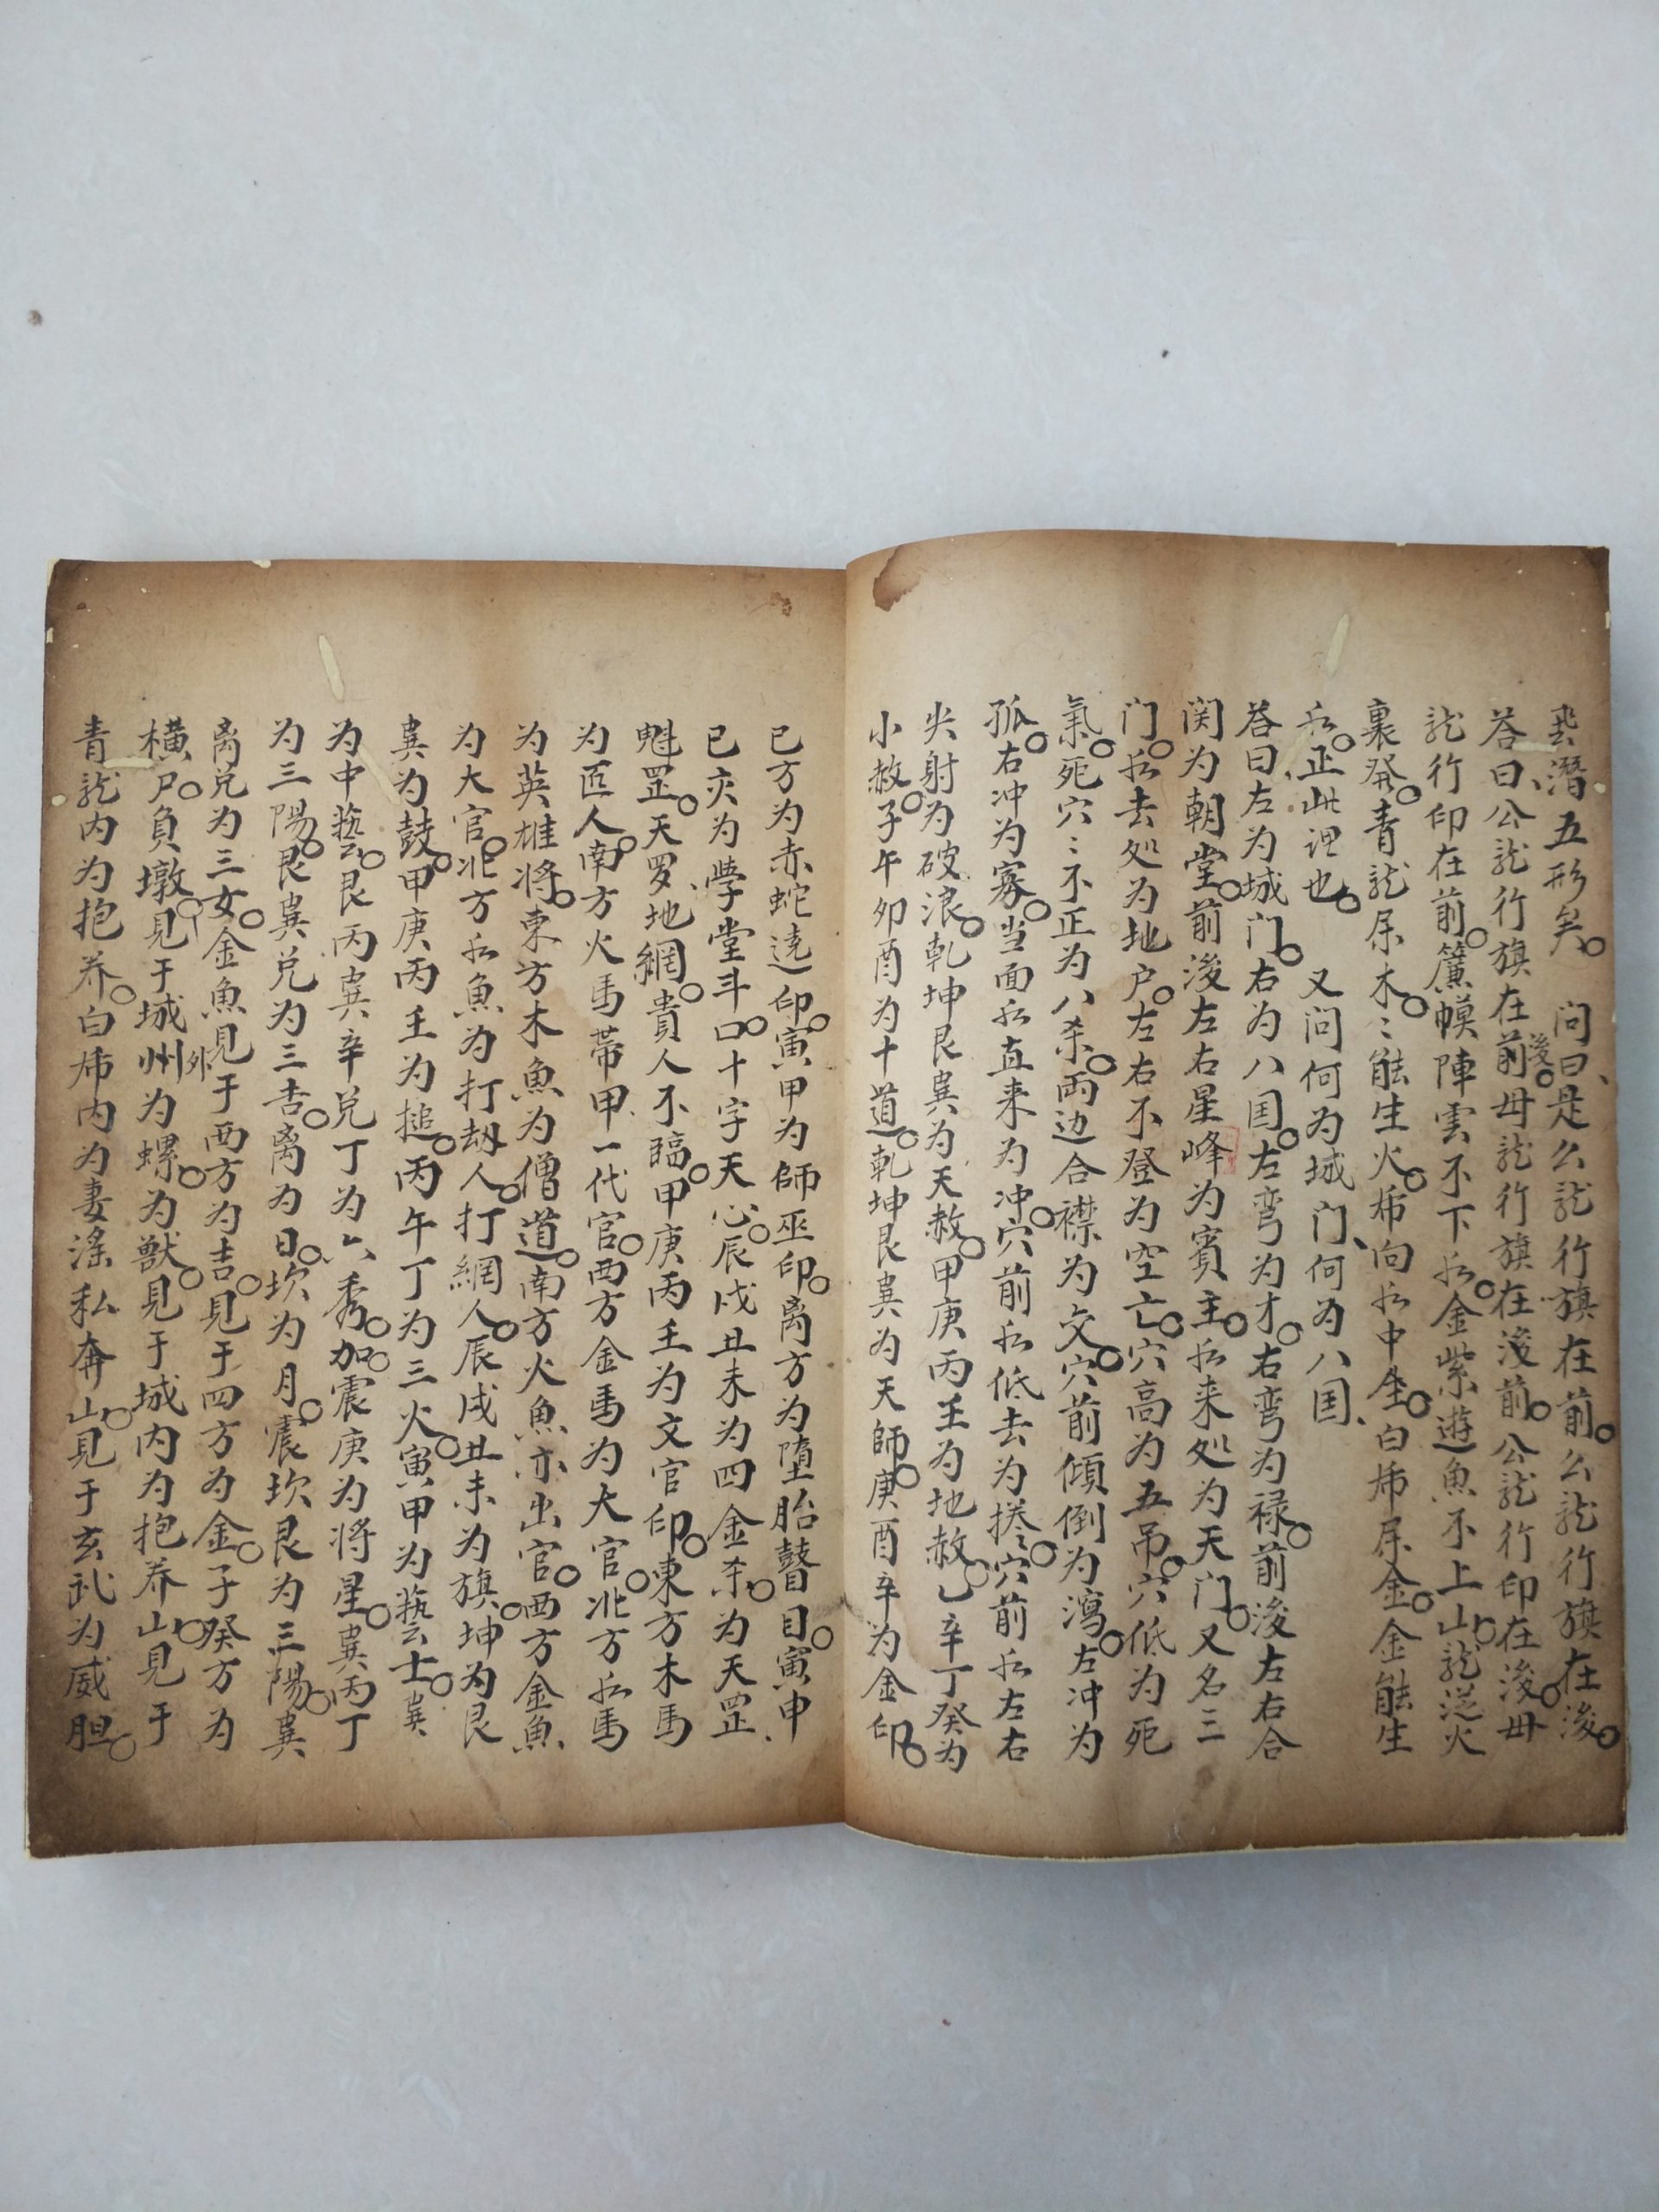 潛五形矣。 問曰、是么龍行旗在前。么龍行旗在後。
答曰、公龍行旗在前後。毋龍行旗在後前。公龍行印在後。毋
龍行印在前。簾幙陣雲不下水。金紫遊魚不上山。龍從火
裏發。青龍屬木。木能生火。虎向水中生。白虎屬金。金能生
水。正此理也。 又問何为城门、何为八国、
答曰、左为城门。右为八国。左弯为才。右弯为禄。前後左右合
関为朝堂。前後左右星峰为賓主。水来处为天门。又名三
门。水去处为地户。左右不登为空亡。穴高为五吊。穴低为死
氣。死穴穴不正为八杀。兩边合襟为交。穴前傾倒为瀉。左冲为
孤。右冲为寡。当面水直来为冲。穴前水低去为捲。穴前水左右
尖射为破浪。乾坤艮巽为天赦。甲庚丙壬为地赦。乙辛丁癸为
小赦。子午卯酉为十道。乾坤艮巽为天師。庚酉辛为金印。
巳方为赤蛇遶印。寅甲为師巫印。离方为墮胎瞽目。寅申
巳亥为學堂斗口。十字天心。辰戌丑未为四金杀。为天罡、
魁罡。天罗、地網。貴人不臨。甲庚丙壬为文官印。東方木馬
为匠人。南方火馬带甲、一代官。西方金馬为大官。北方水馬
为英雄将。東方木魚为僧道。南方火魚亦出官。西方金魚
为大官。北方水魚为打劫人。打網人。辰戌丑未为旗。坤为艮
巽为鼓。甲庚丙壬为搥。丙午丁为三火。寅甲为藝士。巽
为中藝。艮丙巽辛兑丁为六秀。加。震庚为将星。巽丙丁
为三陽。艮巽兑为三吉。离为日。坎为月。震坎艮为三陽。巽
离兑为三女。金魚見于西方为吉。見于四方为金。子癸方为
横尸。負墩。見于城州外为螺。为獣。見于城内为抱养。山見于
青龍内为抱养。白虎内为妻滛私奔。山見于玄武为威胆。